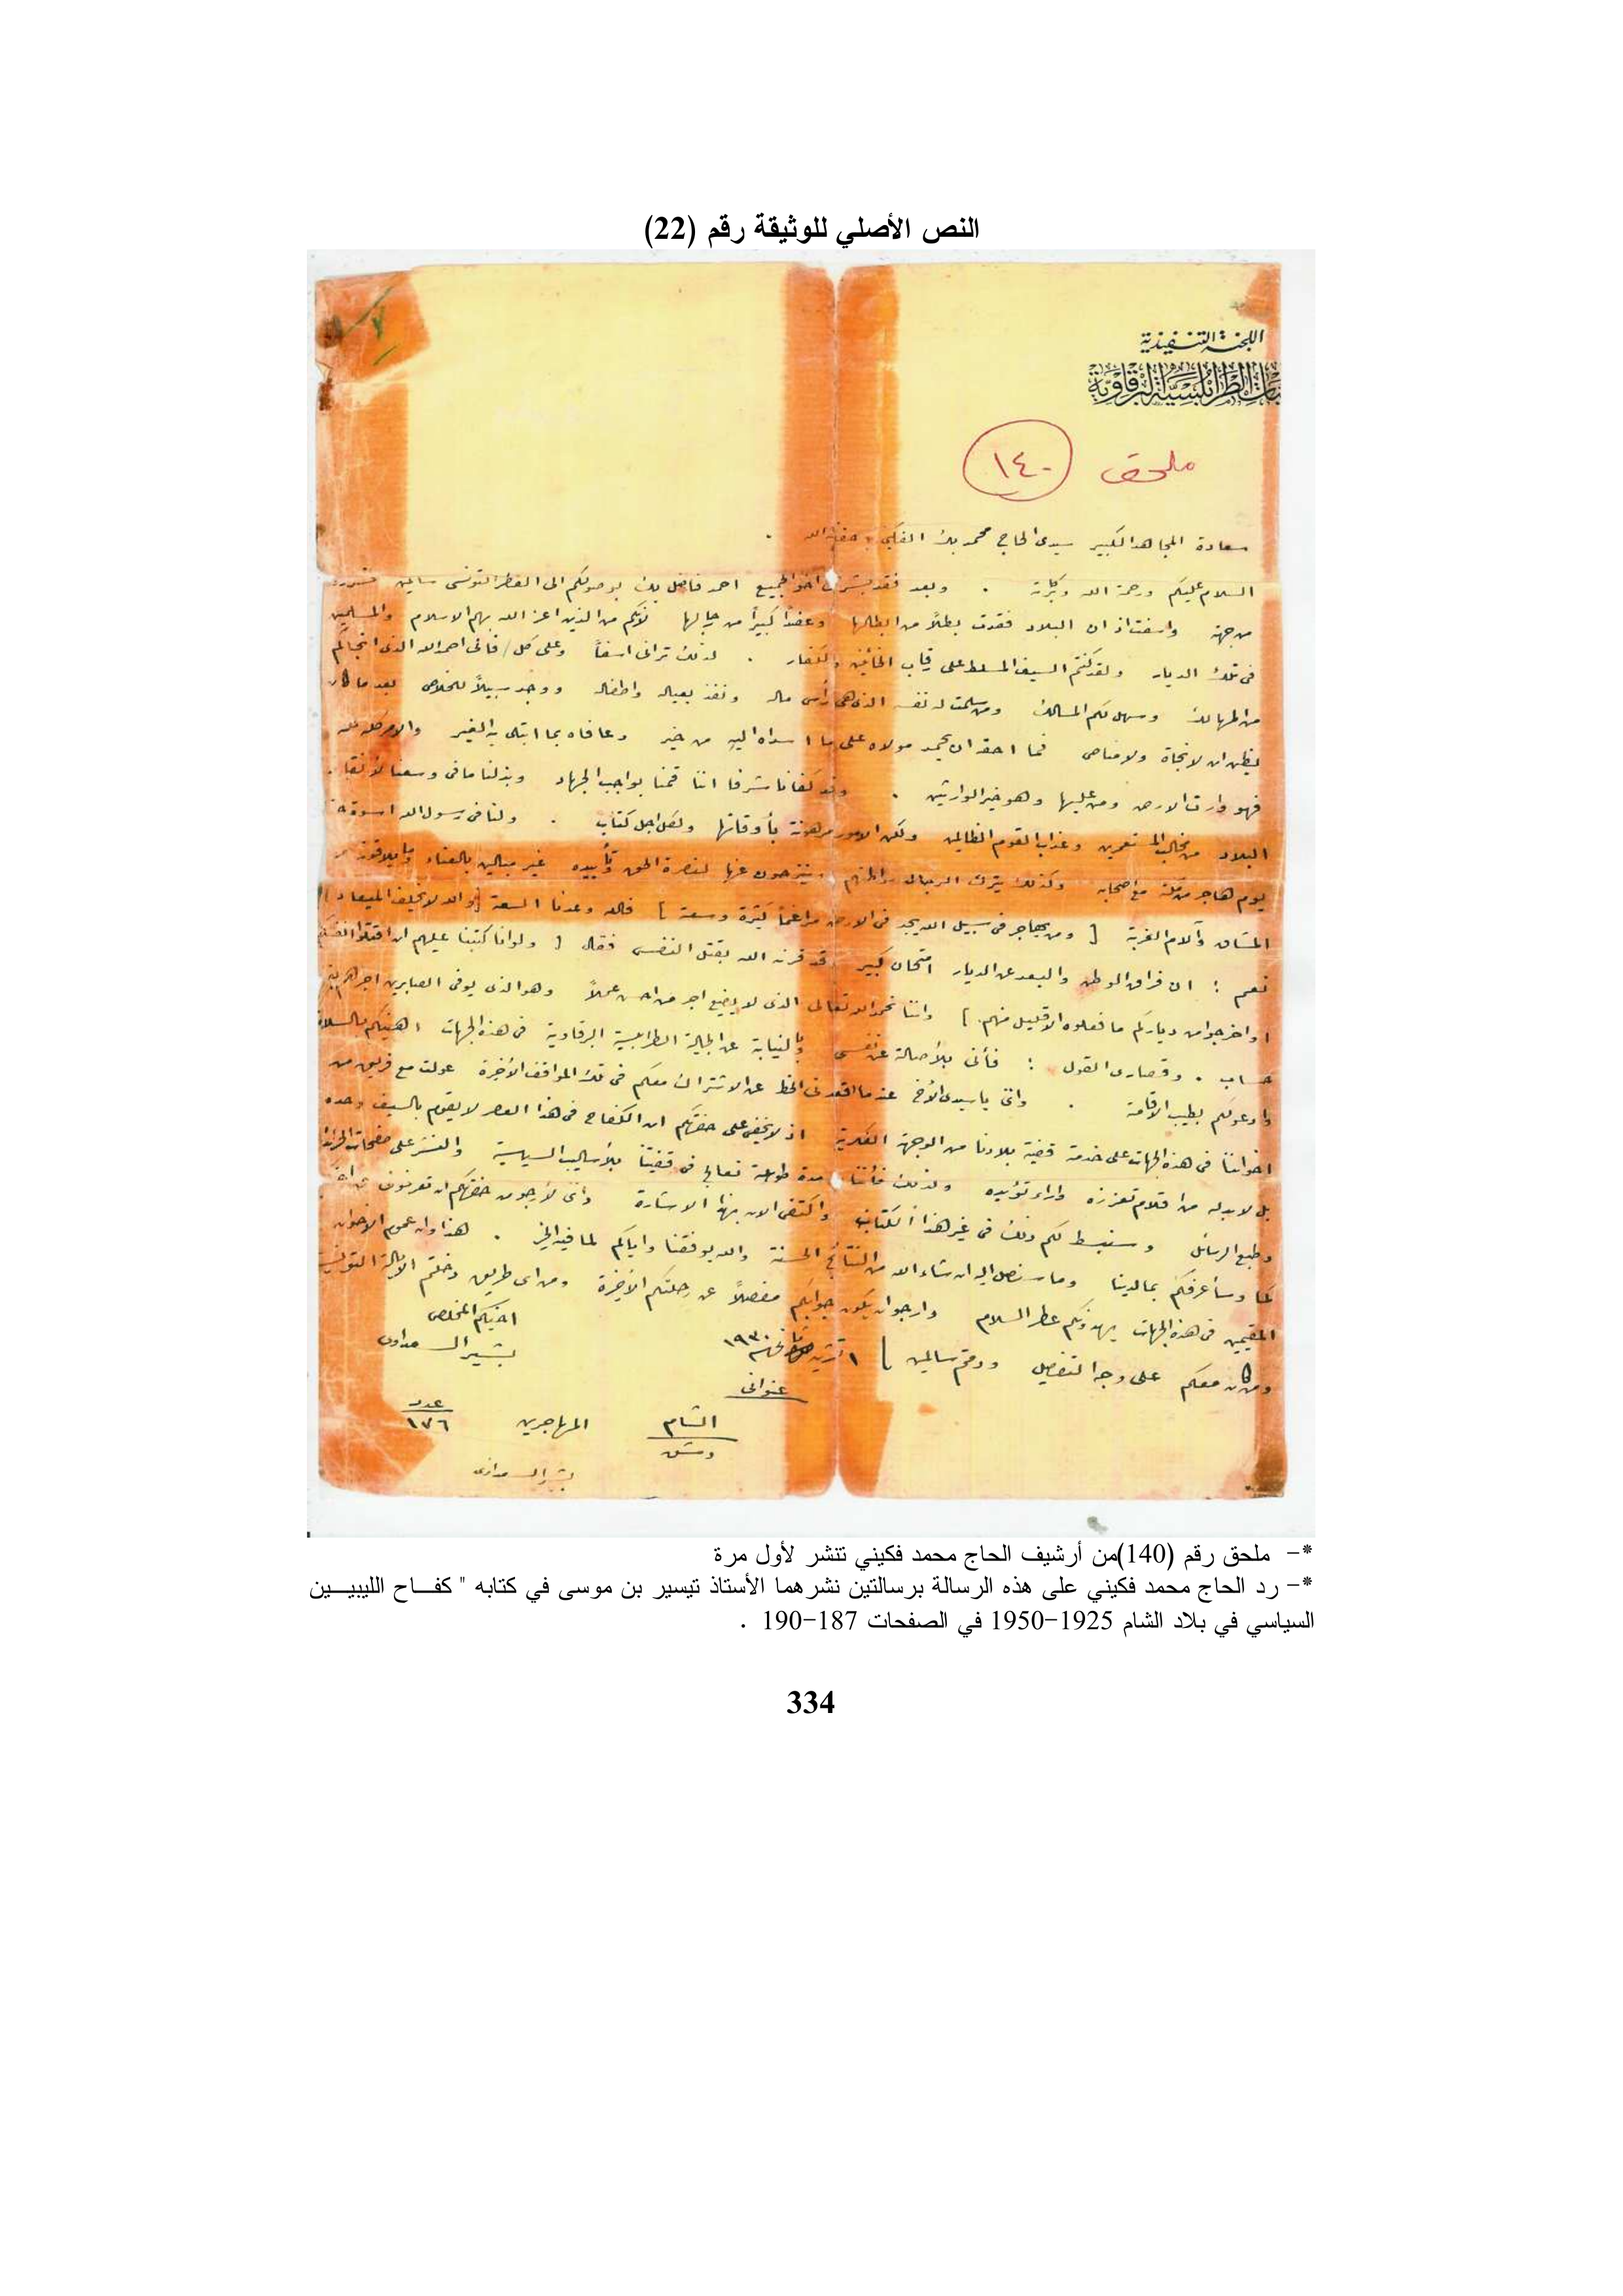 النص الأصلي للوثيقة رقم (22)
اللجنة التنفيذية
الطرابلسية البرقاوية
ملحق ١٤٠
سعادة المجاهد الكبير سيدى الحاج محمد بك الفكينى حفظه الله .
السلام عليكم ورحمة الله وبركاته . وبعد فقد بشرنى اخو الجميع احمد فاضل بك بوصولكم الى القطر التونسى سالمين فسررت
من جهة واسفت اذ ان البلاد فقدت بطلاً من ابطالها وعضداً كبيراً من رجالها لأنكم من الذين اعز الله بهم الاسلام والمسلمين
فى تلك الديار ولقد كنتم السيف المسلط على رقاب الخائنين والكفار . لذلك ترانى اسفاً وعلى كل فانى احمد الله الذى انجاكم
من المهالك وسهل لكم المسالك ومن سلمت له نفسه الذى هى رأس ماله ونفذ بعياله واطفاله ووجد سبيلاً للخلاص بعد ما كان
يظن ان لا نجاة ولا مناص فما احقه ان يحمد مولاه على ما اسداه اليه من خير وعافاه بما ابتلى به الغير والامر كله لله
فهو وارث الارض ومن عليها وهو خير الوارثين . وقد كفانا شرفا اننا قمنا بواجب الجهاد وبذلنا ما فى وسعنا لأنقاذ
البلاد من مخالب المستعمرين وعذاب القوم الظالمين ولكن الامور مرهونة بأوقاتها ولكل اجل كتاب . ولنا فى رسول الله اسوة حسنة
يوم هاجر من مكة مع اصحابه وكذلك يترك الرجال اوطانهم وينزحون عنها لنصرة الحق وتأييده غير مبالين بالعناء وما يلاقونه من
المشاق وآلام الغربة [ ومن يهاجر فى سبيل الله يجد فى الارض مراغماً كثيرة وسعة ] فالله وعدنا السعة [ والله لا يخلف الميعاد ]
نعم ! ان فراق الوطن والبعد عن الديار امتحان كبير قد قرنه الله بقتل النفس فقال [ ولو انا كتبنا عليهم ان اقتلوا انفسكم
او اخرجوا من دياركم ما فعلوه الا قليل منهم . ] واننا نحمد الله تعالى الذى لا يضيع اجر من احسن عملاً وهو الذى يوفى الصابرين اجرهم بغير
حساب . وقصارى القول : فأنى بالأصالة عن نفسى وبالنيابة عن الجالية الطرابلسية البرقاوية فى هذه الجهات اهنيكم بالسلامة
وادعولكم بطيب الاقامة . وانى يا سيدى الأخ عندما اقعدنى الحظ عن الاشتراك معكم فى تلك المواقف الأخيرة عولت مع فريق من
اخواننا فى هذه الجهات على خدمة قضية بلادنا من الوجهة الفكرية اذ لا يخفى على حضرتكم ان الكفاح فى هذا العصر لا يقوم بالسيف وحده
بل لابد له من اقلام تعززه واراء تؤيده ولذلك فأننا مدة طويلة نعالج فى قضيتنا بالأساليب السياسية والنشر على صفحات الجرائد
وطبع الرسائل وسنبسط لكم ذلك فى غير هذا الكتاب واكتفى الان بهذا الاشارة وانى لأرجو من حضرتكم ان تعرفونى
كما وسأعرفكم بما لدينا وما سنصل اليه ان شاء الله من النتائج الحسنة والله يوفقنا واياكم لما فيه الخير . هذا وان عموم الاخوان
المقيمين فى هذه الجهات يهدونكم عطر السلام وارجو ان يكون جوابكم مفصلاً عن رحلتكم الأخيرة ومن اى طريق دخلتم الايالة التونسية
ومن كان معكم على وجه التفصيل ودمتم سالمين
اخيكم المخلص
بشير السعداوى
١٩٣٠
عنوانى
الشام
دمشق
المهاجرين
عدد
١٧٦
بشير السعداوى
*- ملحق رقم (140)من أرشيف الحاج محمد فكيني تنشر لأول مرة
*- رد الحاج محمد فكيني على هذه الرسالة برسالتين نشرهما الأستاذ تيسير بن موسى في كتابه " كفاح الليبيين
السياسي في بلاد الشام 1925-1950 في الصفحات 187-190 .
334